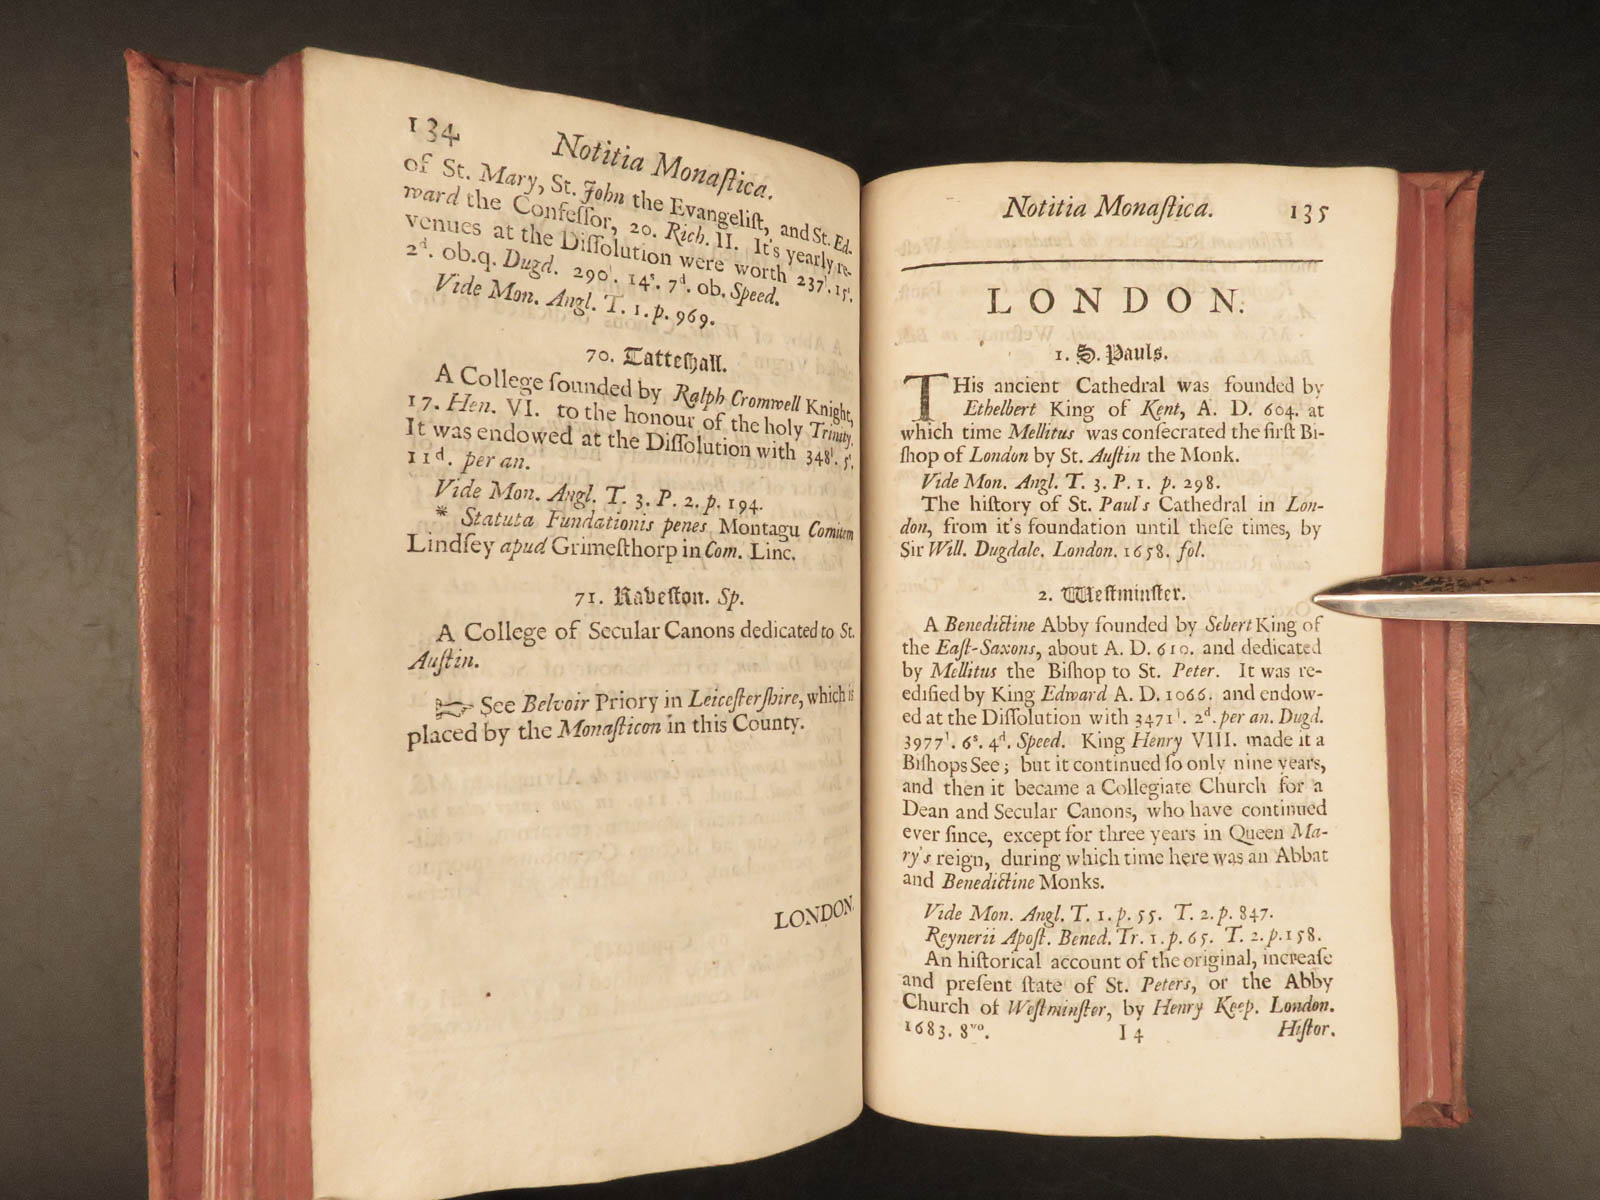 134
Notitia Monaſtica.
of St. Mary, St. John the Evangeliſt, and St. Ed-
ward the Confeſſor, 20. Rich. II. It's yearly re-
venues at the Diſſolution were worth 237ˡ. 15ˢ.
2ᵈ. ob.q. Dugd. 290ˡ. 14ˢ. 7ᵈ. ob. Speed.
Vide Mon. Angl. T. 1. p. 969.
70. Tatteſhall.
A College founded by Ralph Cromwell Knight,
17. Hen. VI. to the honour of the holy Trinity.
It was endowed at the Diſſolution with 348ˡ. 5ˢ.
11ᵈ. per an.
Vide Mon. Angl. T. 3. P. 2. p. 194.
* Statuta Fundationis penes Montagu Comitem
Lindſey apud Grimeſthorp in Com. Linc.
71. Raveſton. Sp.
A College of Secular Canons dedicated to St.
Auſtin.
☞ See Belvoir Priory in Leiceſterſhire, which is
placed by the Monaſticon in this County.
LONDON.
Notitia Monaſtica. 135
LONDON.
1. S. Pauls.
THis ancient Cathedral was founded by
Ethelbert King of Kent, A. D. 604. at
which time Mellitus was conſecrated the firſt Bi-
ſhop of London by St. Auſtin the Monk.
Vide Mon. Angl. T. 3. P. 1. p. 298.
The hiſtory of St. Paul's Cathedral in Lon-
don, from it's foundation until theſe times, by
Sir Will. Dugdale. London. 1658. fol.
2. Weſtminſter.
A Benedictine Abby founded by Sebert King of
the Eaſt-Saxons, about A. D. 610. and dedicated
by Mellitus the Biſhop to St. Peter. It was re-
edified by King Edward A. D. 1066. and endow-
ed at the Diſſolution with 3471ˡ. 2ᵈ. per an. Dugd.
3977ˡ. 6ˢ. 4ᵈ. Speed. King Henry VIII. made it a
Biſhops See; but it continued ſo only nine years,
and then it became a Collegiate Church for a
Dean and Secular Canons, who have continued
ever ſince, except for three years in Queen Ma-
ry's reign, during which time here was an Abbat
and Benedictine Monks.
Vide Mon. Angl. T. 1. p. 55. T. 2. p. 847.
Reynerii Apoſt. Bened. Tr. 1. p. 65. T. 2. p. 158.
An hiſtorical account of the original, increaſe
and preſent ſtate of St. Peters, or the Abby
Church of Weſtminſter, by Henry Keep. London.
1683. 8ᵛᵒ. I 4 Hiſtor.